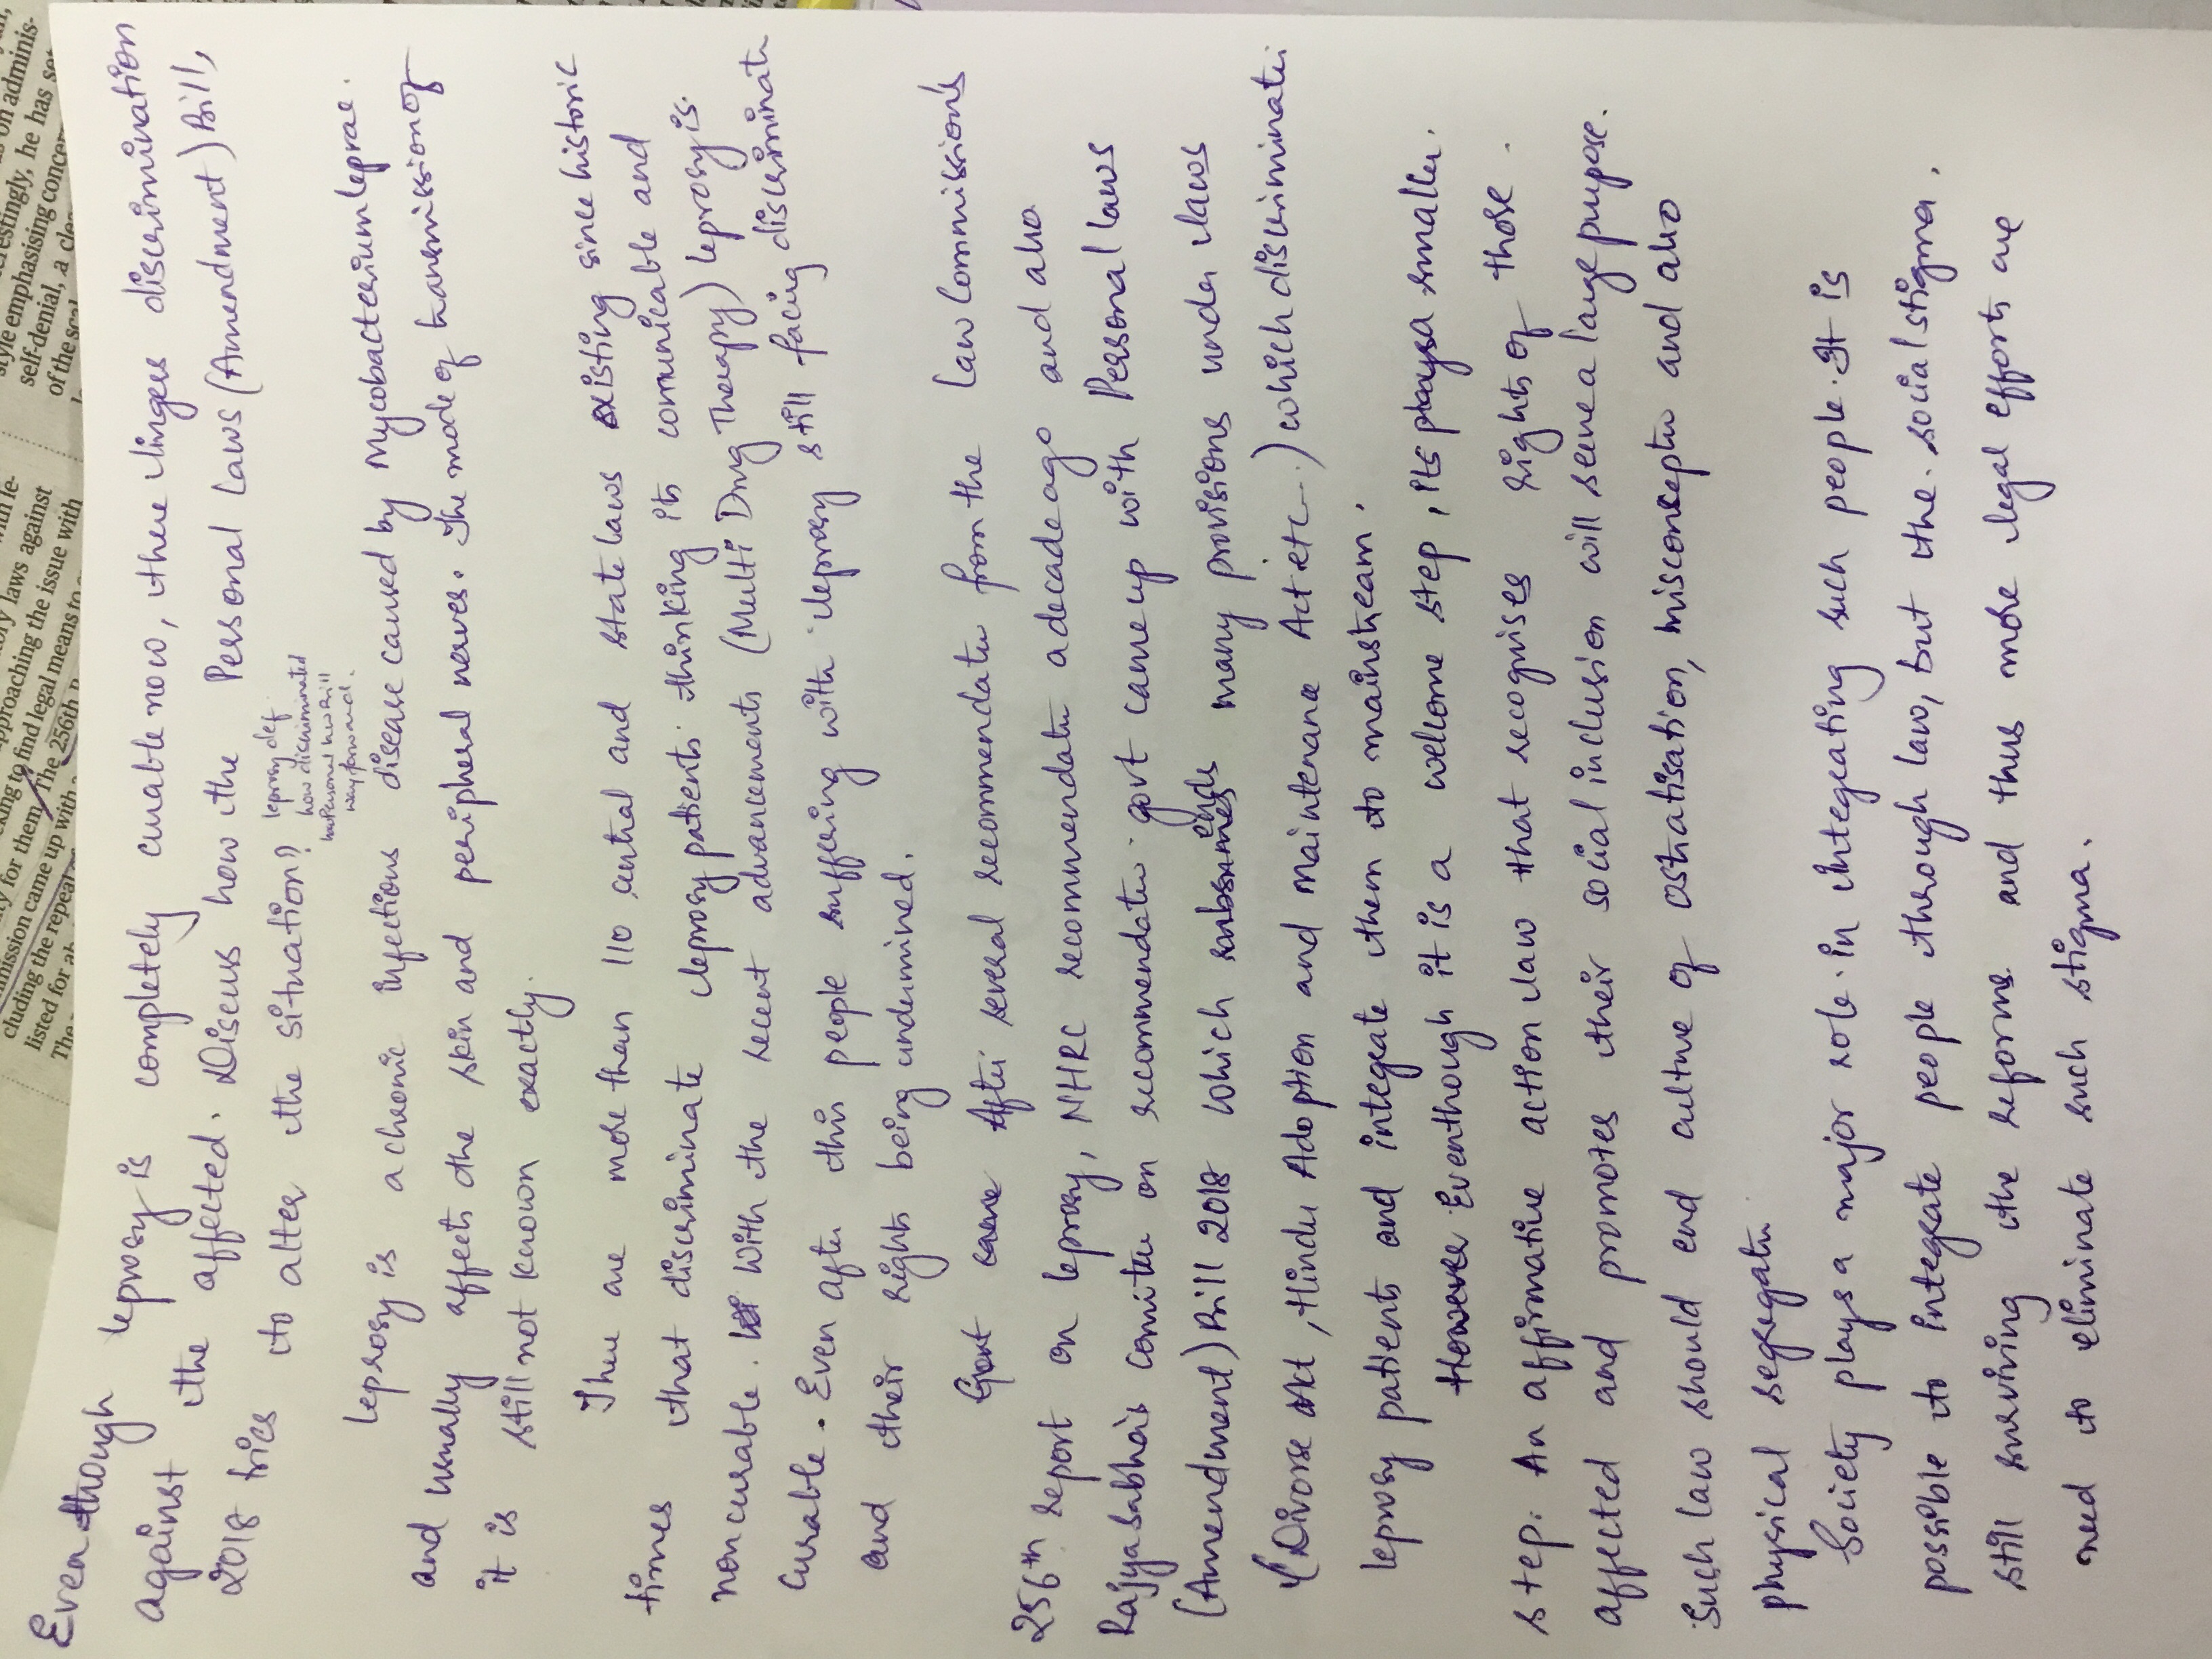 style emphasising concer
self-denial, a
of the
laws against
approaching the issue with
find legal means to
for them. The 256th
mission came up with
cluding the repeal
listed for
Eventhough leprosy is completely curable now, there lingers discrimination
against the affected. Discuss how the Personal Laws (Amendment) Bill,
2018 tries to alter the situation?
leprosy def
how discriminated
way forward.
leprosy is a chronic infectious disease caused by Mycobacterium leprae.
and usually affects the skin and peripheral nerves. The mode of transmission of
it is still not known exactly.
There are more than 110 central and state laws existing since historic
times that discriminate leprosy patients thinking its communicable and
non curable. With the recent advancements (Multi Drug Therapy) leprosy is
curable. Even after this people suffering with leprosy still facing discriminatn
and their rights being undermined.
Govt came After several recommendatn from the Law Commission's
256th report on leprosy, NHRC recommendatn a decade ago and also
Rajyasabha's comittee on recommendatn govt came up with Personal laws
(Amendment) Bill 2018 which ends many provisions under laws
(Divorse Act, Hindu Adoption and maintenance Act etc..) which discriminate
leprosy patients and integrate them to mainstream.
However Eventhough it is a welcome step, its plays a smaller
step. An affirmative action law that recognises rights of those
affected and promotes their social inclusion will serve a large purpose.
Such law should end culture of ostratisation, misconceptn and also
physical segregatn
Society plays a major role in integrating such people. It is
possible to integrate people thorough law, but the social stigma.
still surviving the reforms and thus more legal efforts are
need to eliminate such stigma.